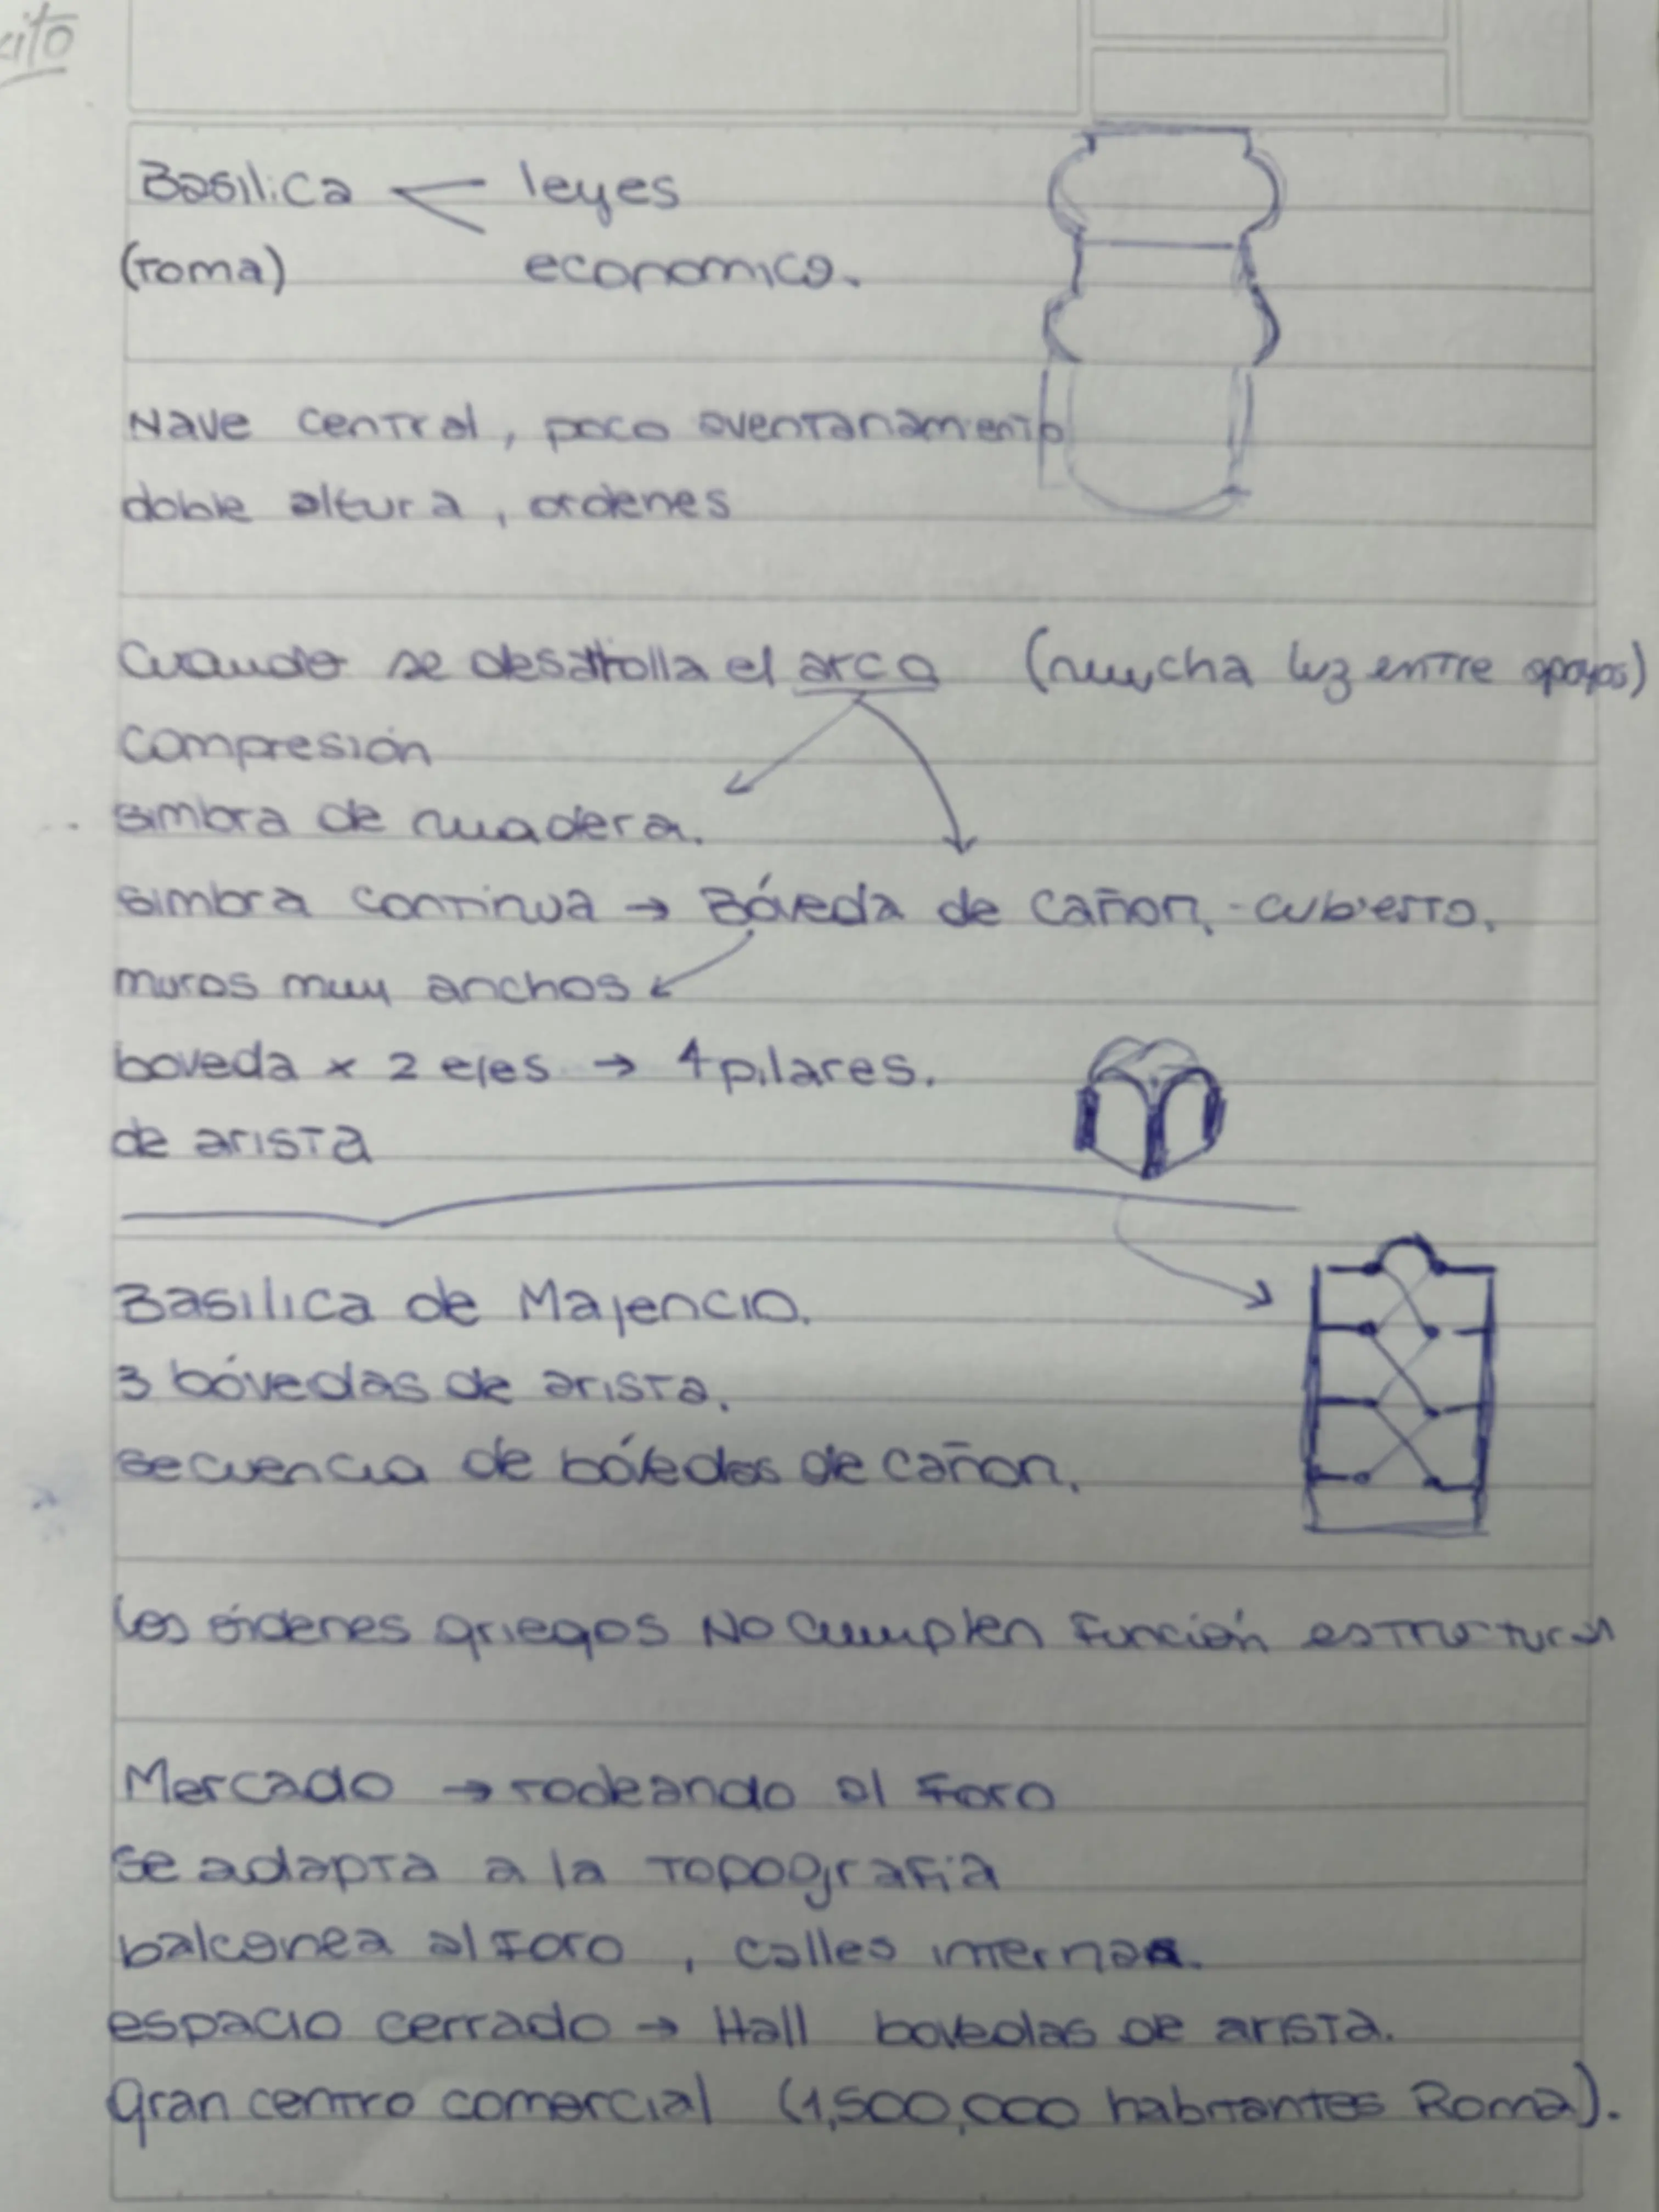 Basilica < leyes
(roma) economico.
Nave central, poco aventanamiento
doble altura, ordenes
Cuando se desarrolla el arco (mucha luz entre apoyos)
compresión
simbra de madera.
simbra continua → Bóveda de cañon. - cubierto.
muros muy anchos
boveda x 2 ejes → 4 pilares.
de arista
Basilica de Majencio.
3 bóvedas de arista.
secuencia de bóvedas de cañon.
Los órdenes griegos No cumplen función estructural
Mercado → rodeando al foro
se adapta a la topografia
balconea al foro, calles internas.
espacio cerrado → Hall bovedas de arista.
Gran centro comercial (1,500,000 habitantes Roma).